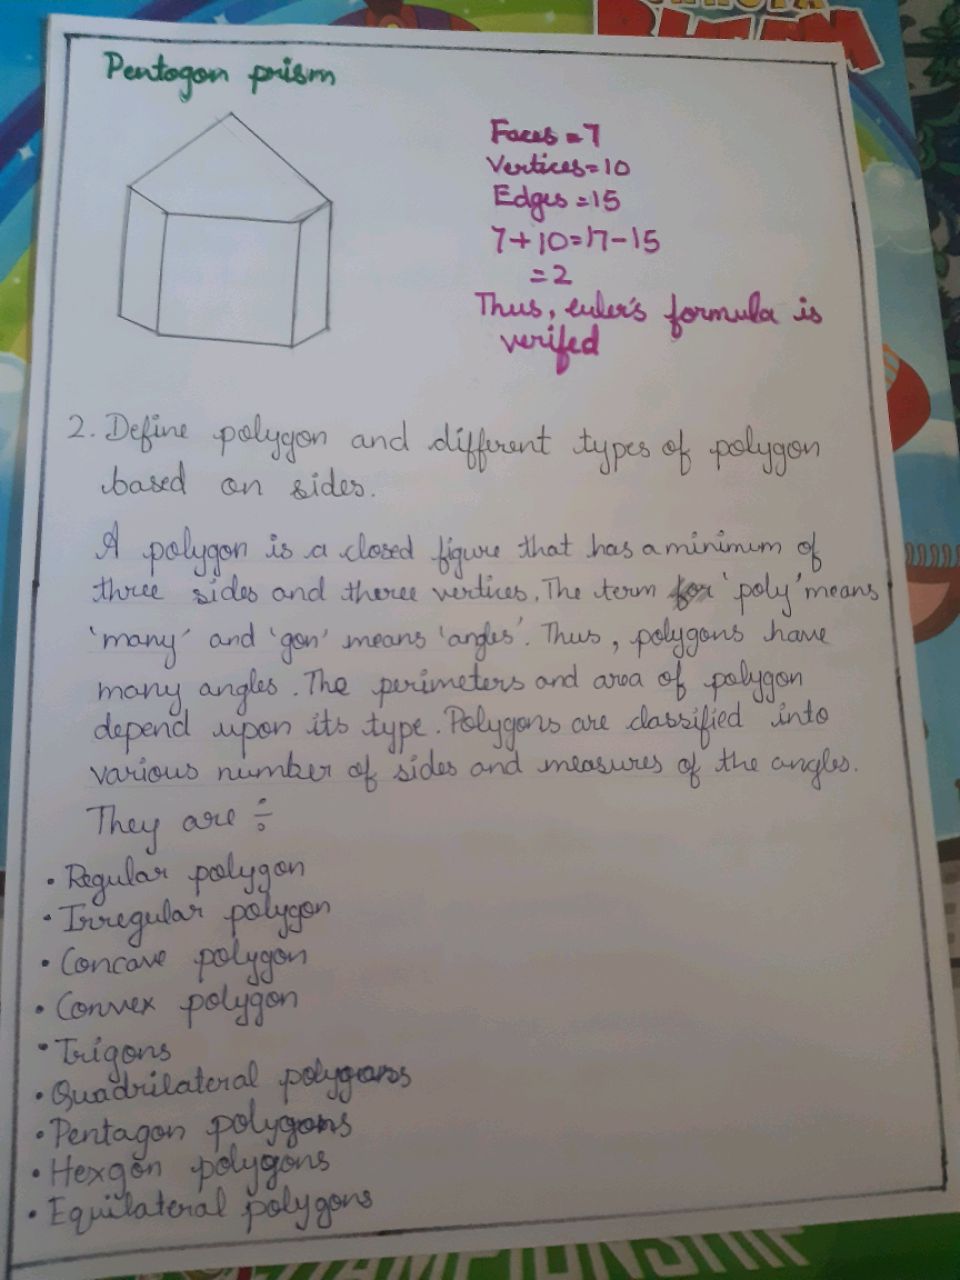 Pentogon prism
Faces = 7
Vertices = 10
Edges = 15
7 + 10 = 17 - 15
= 2
Thus, euler's formula is
verifed
2. Define polygon and different types of polygon
based on sides.
A polygon is a closed figure that has a minimum of
three sides and theree vertices. The term for 'poly' means
'many' and 'gon' means 'angles'. Thus, polygons have
many angles. The perimeters and area of polygon
depend upon its type. Polygons are classified into
various number of sides and measures of the angles.
They are ÷
• Regular polygon
• Irregular polygon
• Concave polygon
• Convex polygon
• Trigons
• Quadrilateral polygons
• Pentagon polygons
• Hexgon polygons
• Equilateral polygons